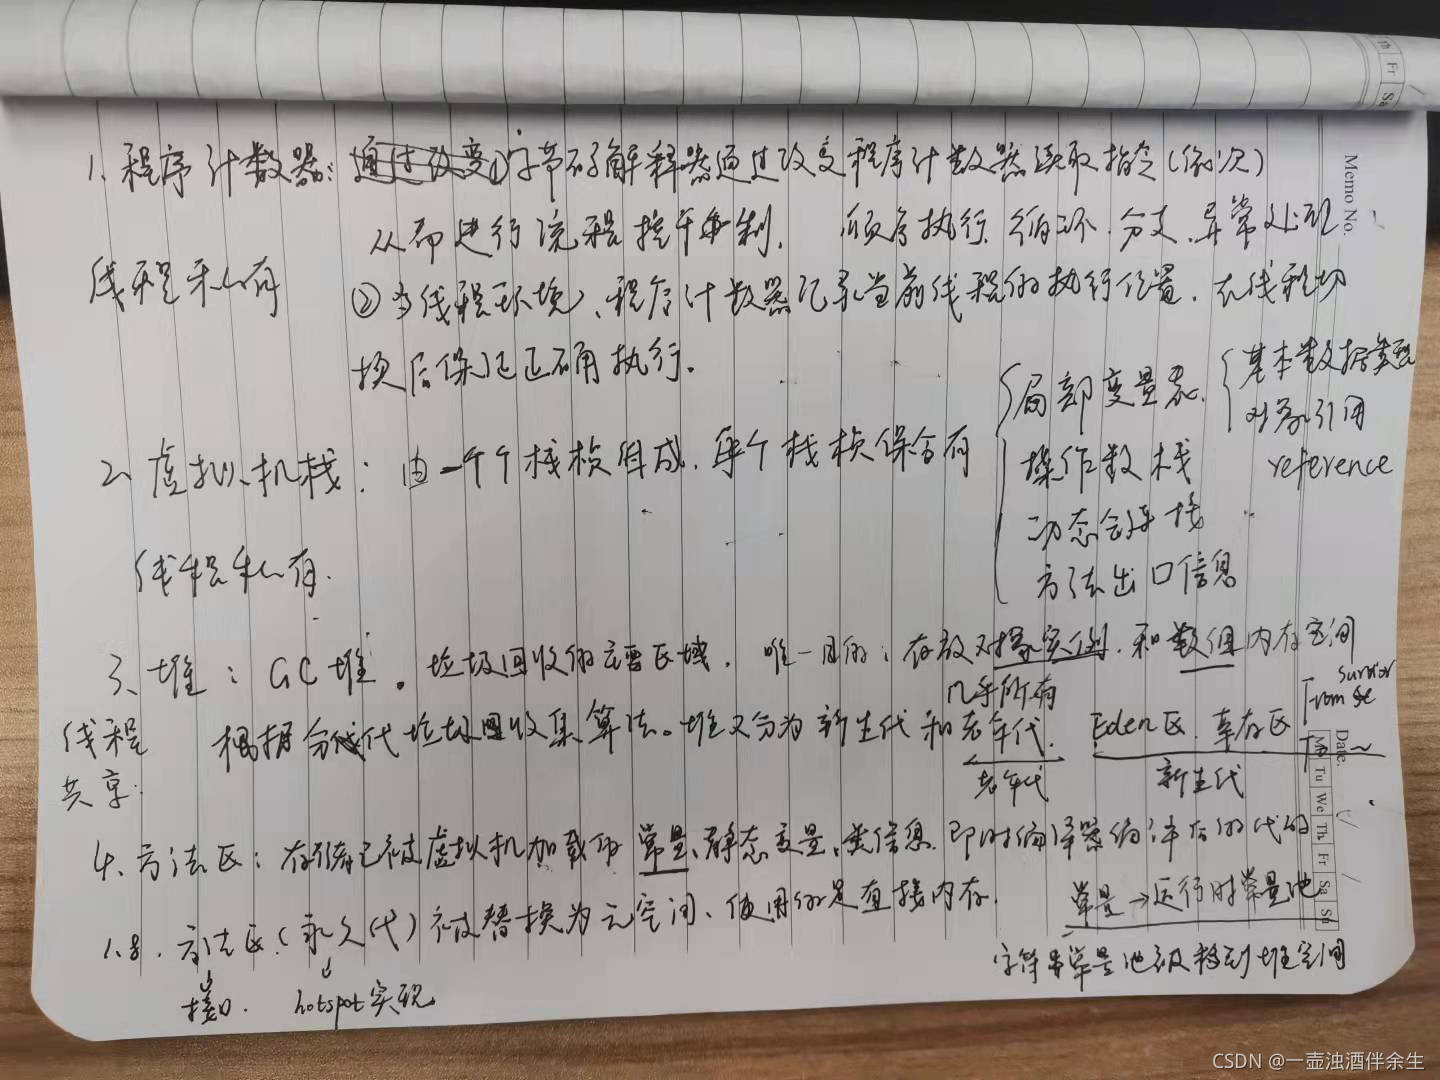 Th Fr Sa
Memo No.
1、程序计数器: 通过改变①字节码解释器通过改变程序计数器读取指令(依次)
从而进行流程控制. 顺序执行、循环、分支、异常处理
线程私有
②多线程环境、程序计数器记录当前线程的执行位置. 在线程切
换后保证正确执行.
2、虚拟机栈: 由一个个栈桢组成. 每个栈桢保含有
局部变量表.
基本数据类型
对象引用
reference
操作数栈
动态链接
方法出口信息
线程私有.
3、堆: GC堆. 垃圾回收的主要区域. 唯一目的: 存放对象实例. 和数组内存空间
几乎所有
线程
共享:
根据分代垃圾回收集算法。堆又分为新生代和老年代. Eden区. 幸存区
From
survivor
老年代
新生代
Date.
Mo Tu We Th Fr Sa Su
4、方法区: 存储已被虚拟机加载的常量、静态变量、类信息. 即时编译器编译后的代码
常量→运行时常量池
1.8. 方法区(永久代)被替换为元空间、使用的是直接内存.
字符串常量池被移到堆空间
接口. hotspot实现
CSDN @一壶浊酒伴余生